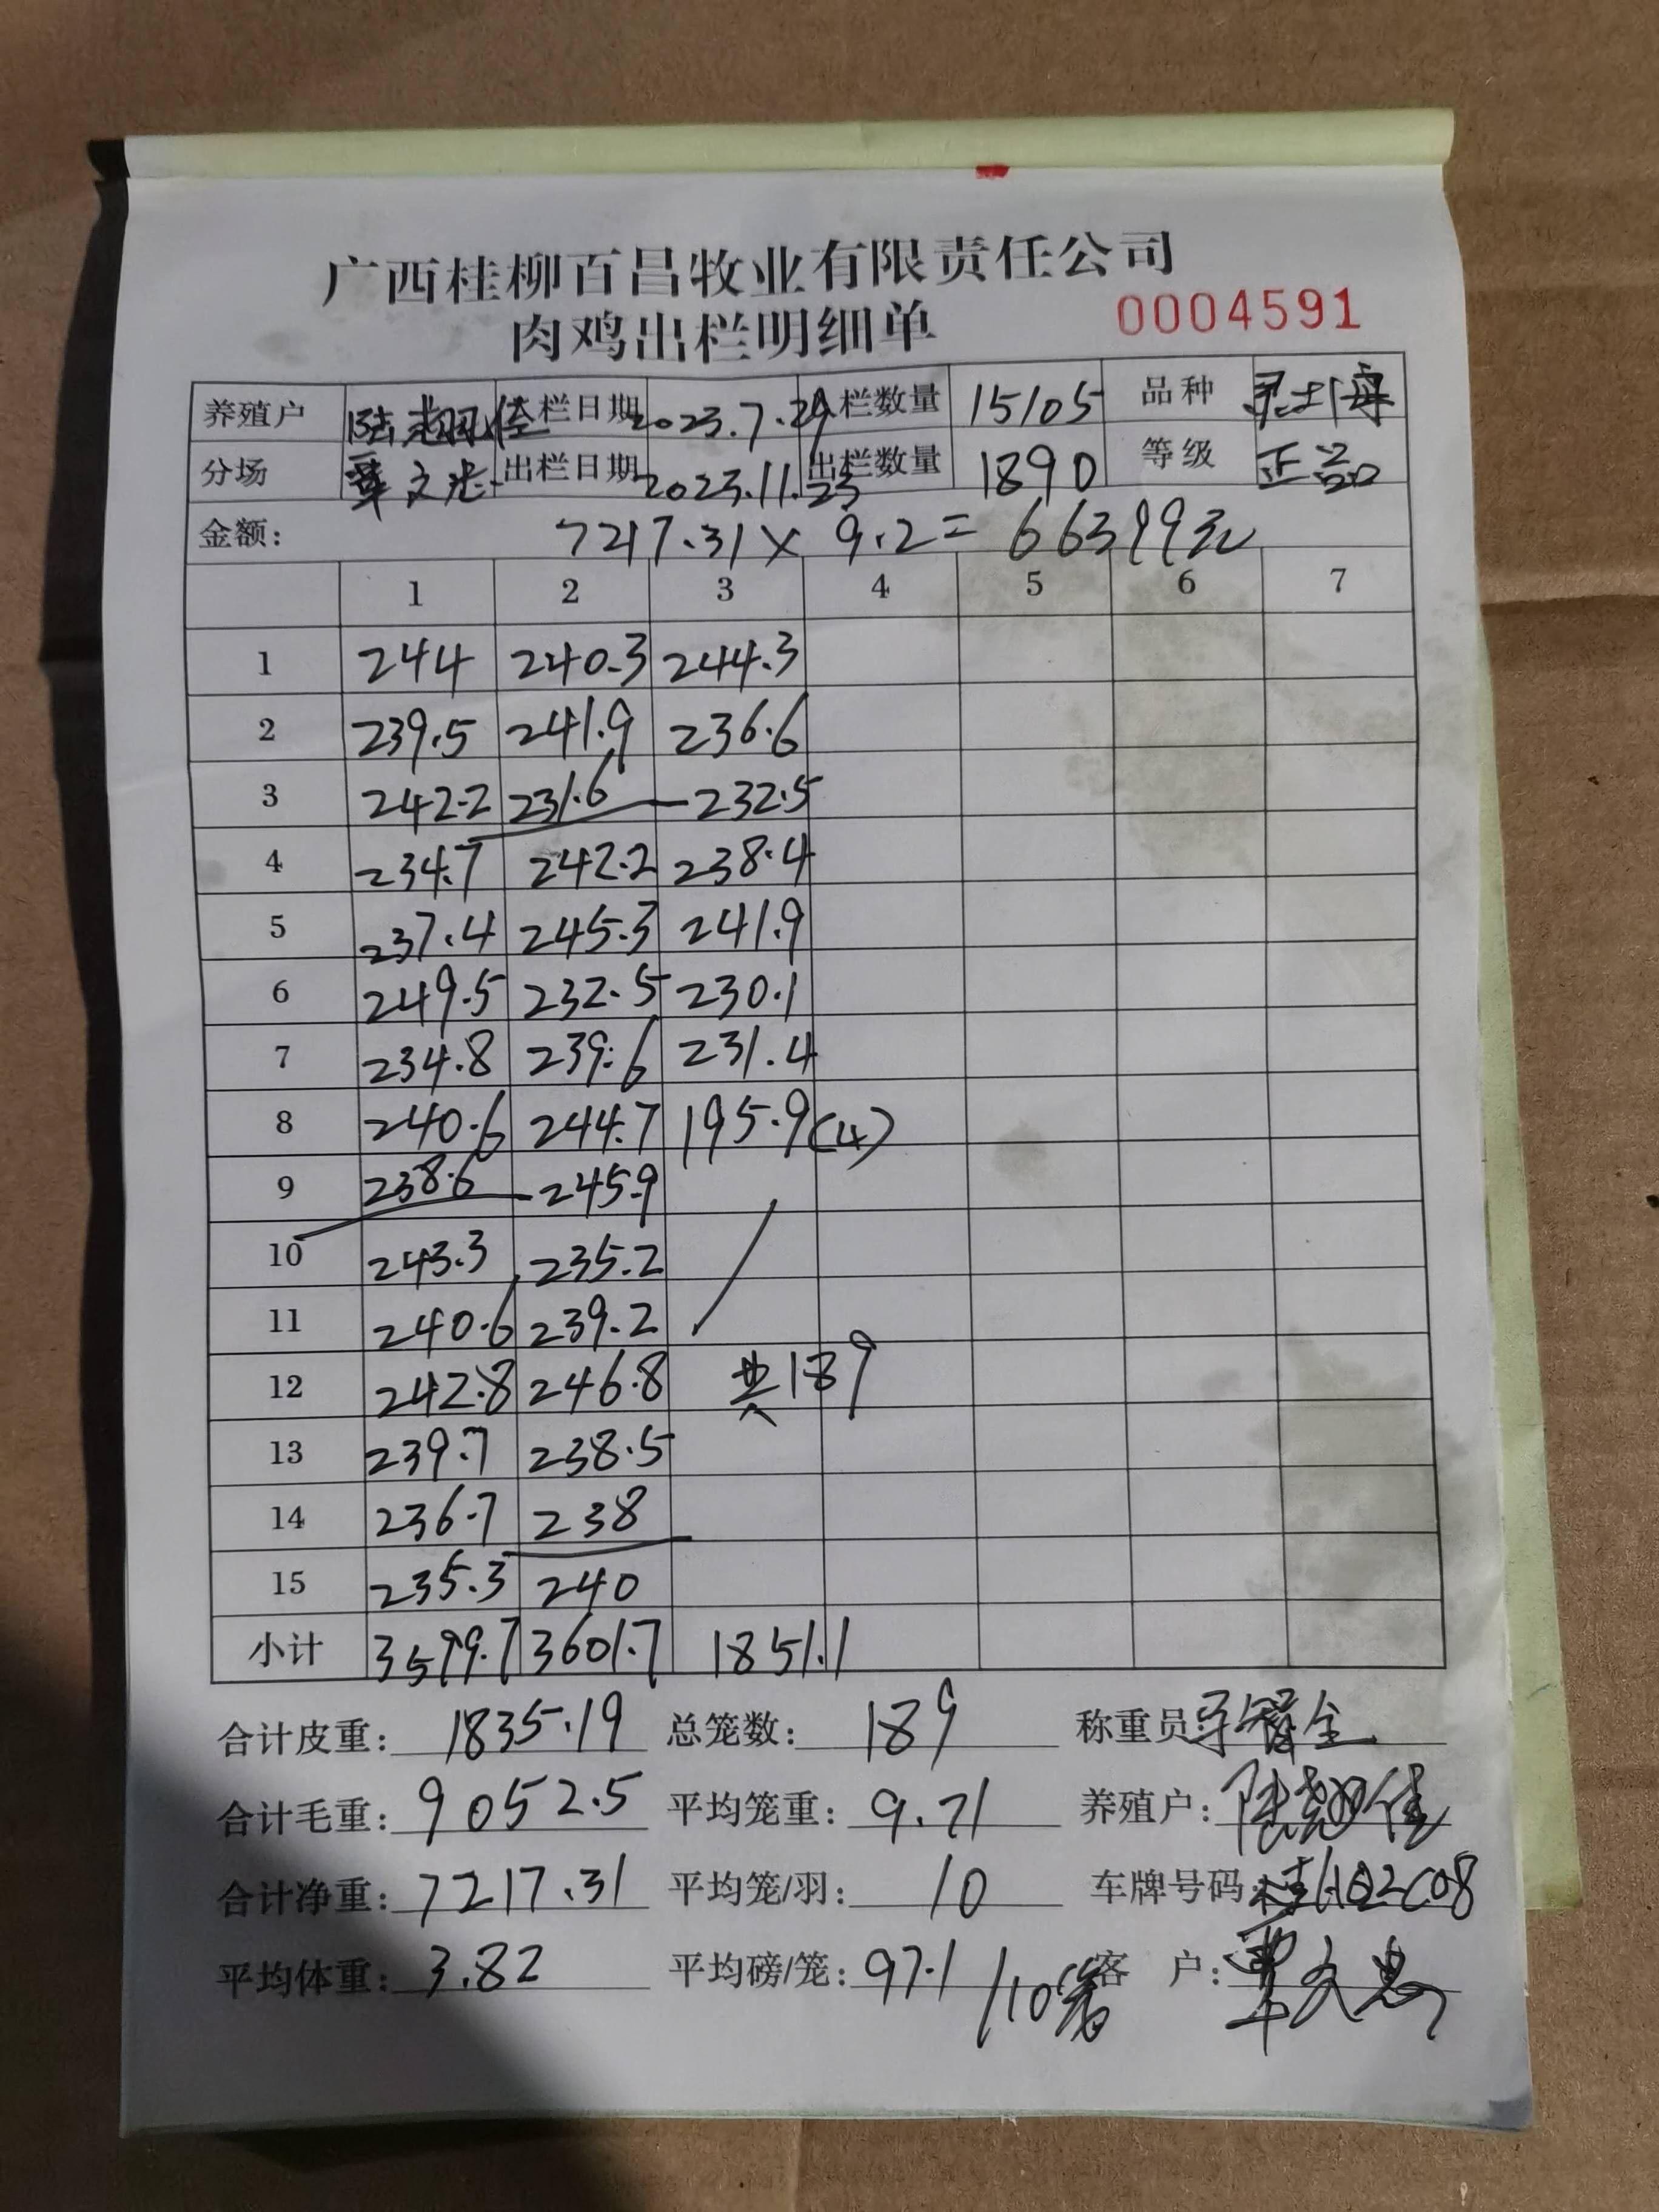 广西桂柳百昌牧业有限责任公司
肉鸡出栏明细单 0004591
养殖户 陆翅佳 入栏日期 2023.7.29 入栏数量 15105 品种 灵山母
分场 覃文忠 出栏日期 2023.11.23 出栏数量 1890 等级 正品
金额: 7217.31 × 9.2 = 66399元
1 2 3 4 5 6 7
1 244 240.3 244.3
2 239.5 241.9 236.6
3 242.2 231.6 232.5
4 234.7 242.2 238.4
5 237.4 245.3 241.9
6 249.5 232.5 230.1
7 234.8 239.6 231.4
8 240.6 244.7 195.9(4)
9 238.6 245.9
10 243.3 235.2
11 240.6 239.2
12 242.8 246.8 共189
13 239.7 238.5
14 236.7 238
15 235.3 240
小计 3599.7 3601.7 1851.1
合计皮重: 1835.19 总笼数: 189 称重员
合计毛重: 9052.5 平均笼重: 9.71 养殖户: 陆翅佳
合计净重: 7217.31 平均笼/羽: 10 车牌号码:
平均体重: 3.82 平均磅/笼: 97.1/10 客 户: 覃文忠